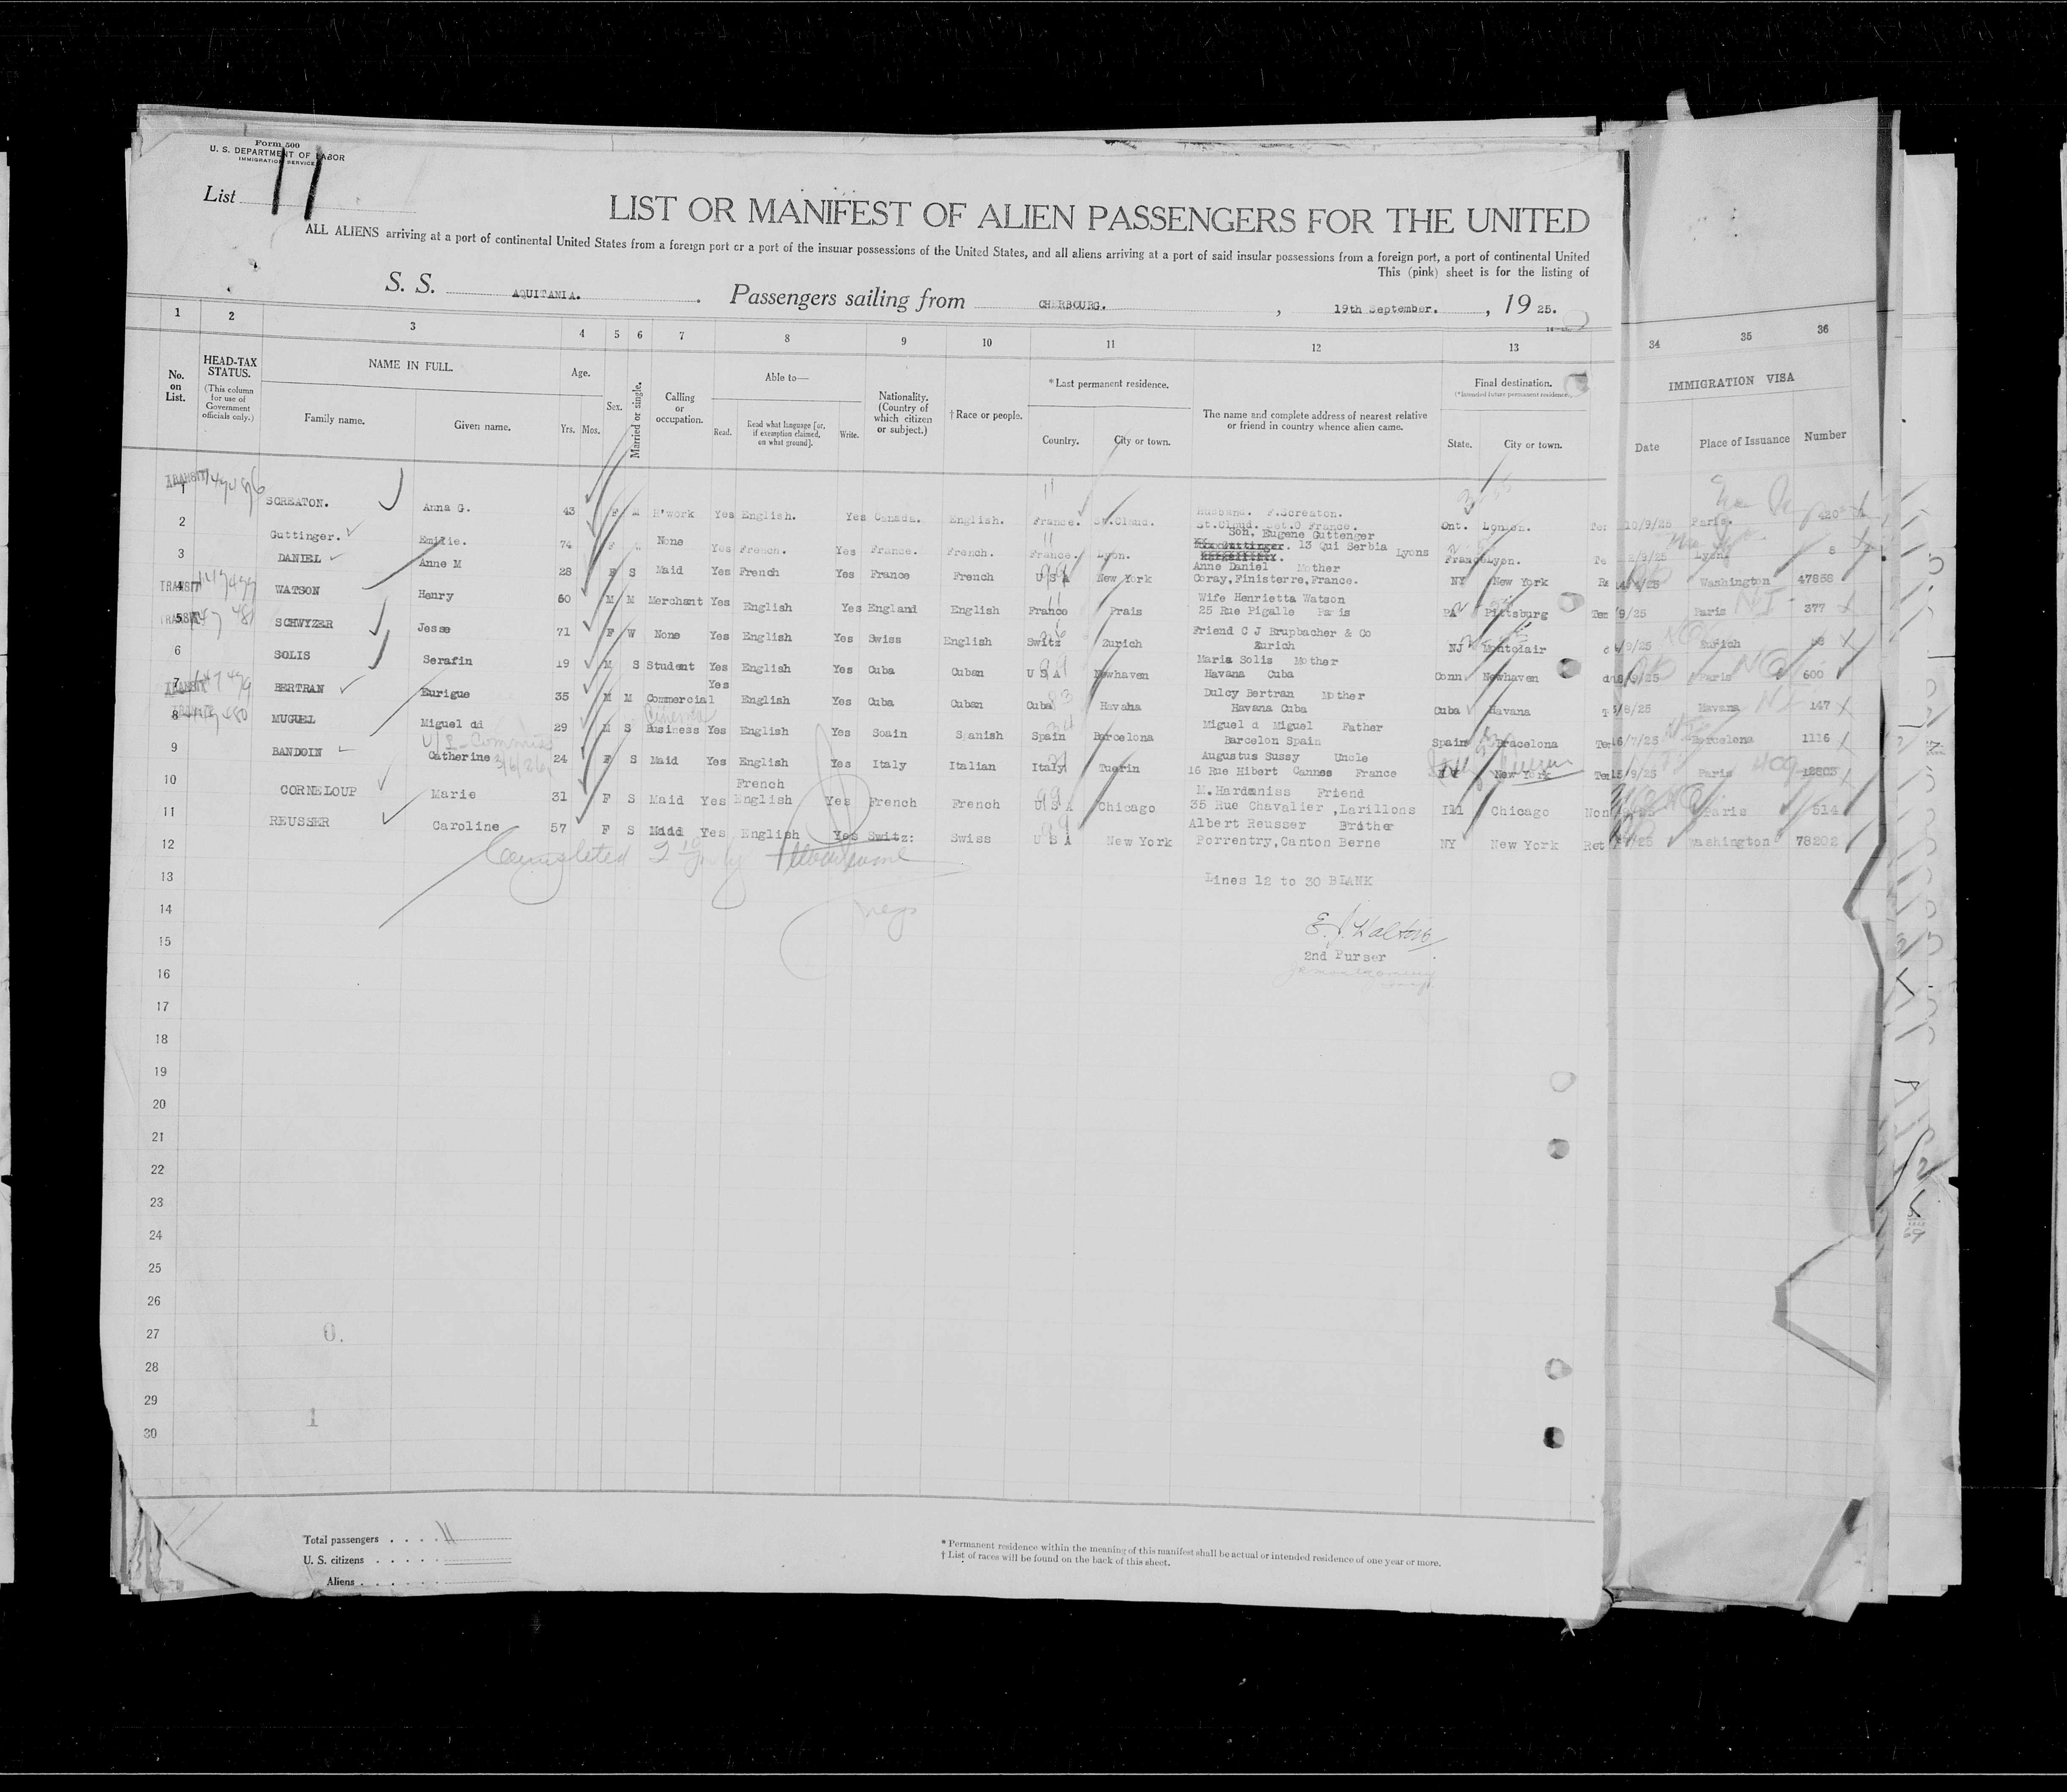 Form 500
U. S. DEPARTMENT OF LABOR
IMMIGRATION SERVICE
List 11
LIST OR MANIFEST OF ALIEN PASSENGERS FOR THE UNITED
ALL ALIENS arriving at a port of continental United States from a foreign port or a port of the insular possessions of the United States, and all aliens arriving at a port of said insular possessions from a foreign port, a port of continental United
This (pink) sheet is for the listing of
S. S. AQUITANIA. Passengers sailing from CHERBOURG. , 19th September. , 19 25.
1 2 3 4 5 6 7 8 9 10 11 12 13 34 35 36
No. on List.
HEAD-TAX STATUS.
(This column for use of Government officials only.)
NAME IN FULL.
Family name. Given name.
Age.
Yrs. Mos.
Sex.
Married or single.
Calling or occupation.
Able to—
Read. Read what language [or, if exemption claimed, on what ground]. Write.
Nationality. (Country of which citizen or subject.)
† Race or people.
* Last permanent residence.
Country. City or town.
The name and complete address of nearest relative or friend in country whence alien came.
Final destination.
(* Intended future permanent residence.)
State. City or town.
IMMIGRATION VISA
Date Place of Issuance Number
1 TRANSIT SCREATON. Anna G. 43 F M H'work Yes English. Yes Canada. English. France. St.Claud. Husband. F.Screaton. Ont. London. 10/9/25 Paris. 420
St.Claud. Set.O France.
2 Guttinger. Emilie. 74 F None Yes French. Yes France. French. France. Lyon. Son. Eugene Guttenger France Lyon. 2/9/25 Lyon. 8
13 Qui Serbia Lyons
3 DANIEL Anne M 28 F S Maid Yes French Yes France French U S A New York Anne Daniel Mother NY New York Washington 47858
Coray,Finisterre,France.
4 TRANSIT WATSON Henry 50 M M Merchant Yes English Yes England English France Prais Wife Henrietta Watson PA Pittsburg 9/25 Paris NI 377
25 Rue Pigalle Paris
5 TRANSIT SCHWYZER Jesse 71 F W None Yes English Yes Swiss English Switz Zurich Friend C J Brupbacher & Co NJ Montclair 9/25 Zurich
Zurich
6 SOLIS Serafin 19 M S Student Yes English Yes Cuba Cuban U S A Newhaven Maria Solis Mother Conn Newhaven 9/25 Paris 600
Havana Cuba
7 TRANSIT BERTRAN Eurigue 35 M M Commercial Yes English Yes Cuba Cuban Cuba Havaha Dulcy Bertran Mother Cuba Havana 8/25 Havana NI 147
Havana Cuba
8 MUGUEL Miguel dd 29 M S Business Yes English Yes Soain Spanish Spain Barcelona Miguel d Miguel Father Spain Bracelona 16/7/25 Barcelona 1116
Barcelon Spain
9 BANDOIN Catherine 24 F S Maid Yes English Yes Italy Italian Italy Tuerin Augustus Sussy Uncle New York 15/9/25 Paris
16 Rue Hibert Cannes France
10 CORNELOUP Marie 31 F S Maid Yes French English Yes French French U S A Chicago M.Hardaniss Friend Ill Chicago Non Paris 514
35 Rue Chavalier ,Larillons
11 REUSSER Caroline 57 F S Maid Yes English Yes Switz: Swiss U S A New York Albert Reusser Brother NY New York Ret Washington 78202
Porrentry,Canton Berne
12
Completed
13 Lines 12 to 30 BLANK
14
E. J. Walton
15
2nd Purser
16
17
18
19
20
21
22
23
24
25
26
27 0.
28
29
1
30
Total passengers . . . . 11
U. S. citizens . . . . .
Aliens . . . . . .
* Permanent residence within the meaning of this manifest shall be actual or intended residence of one year or more.
† List of races will be found on the back of this sheet.